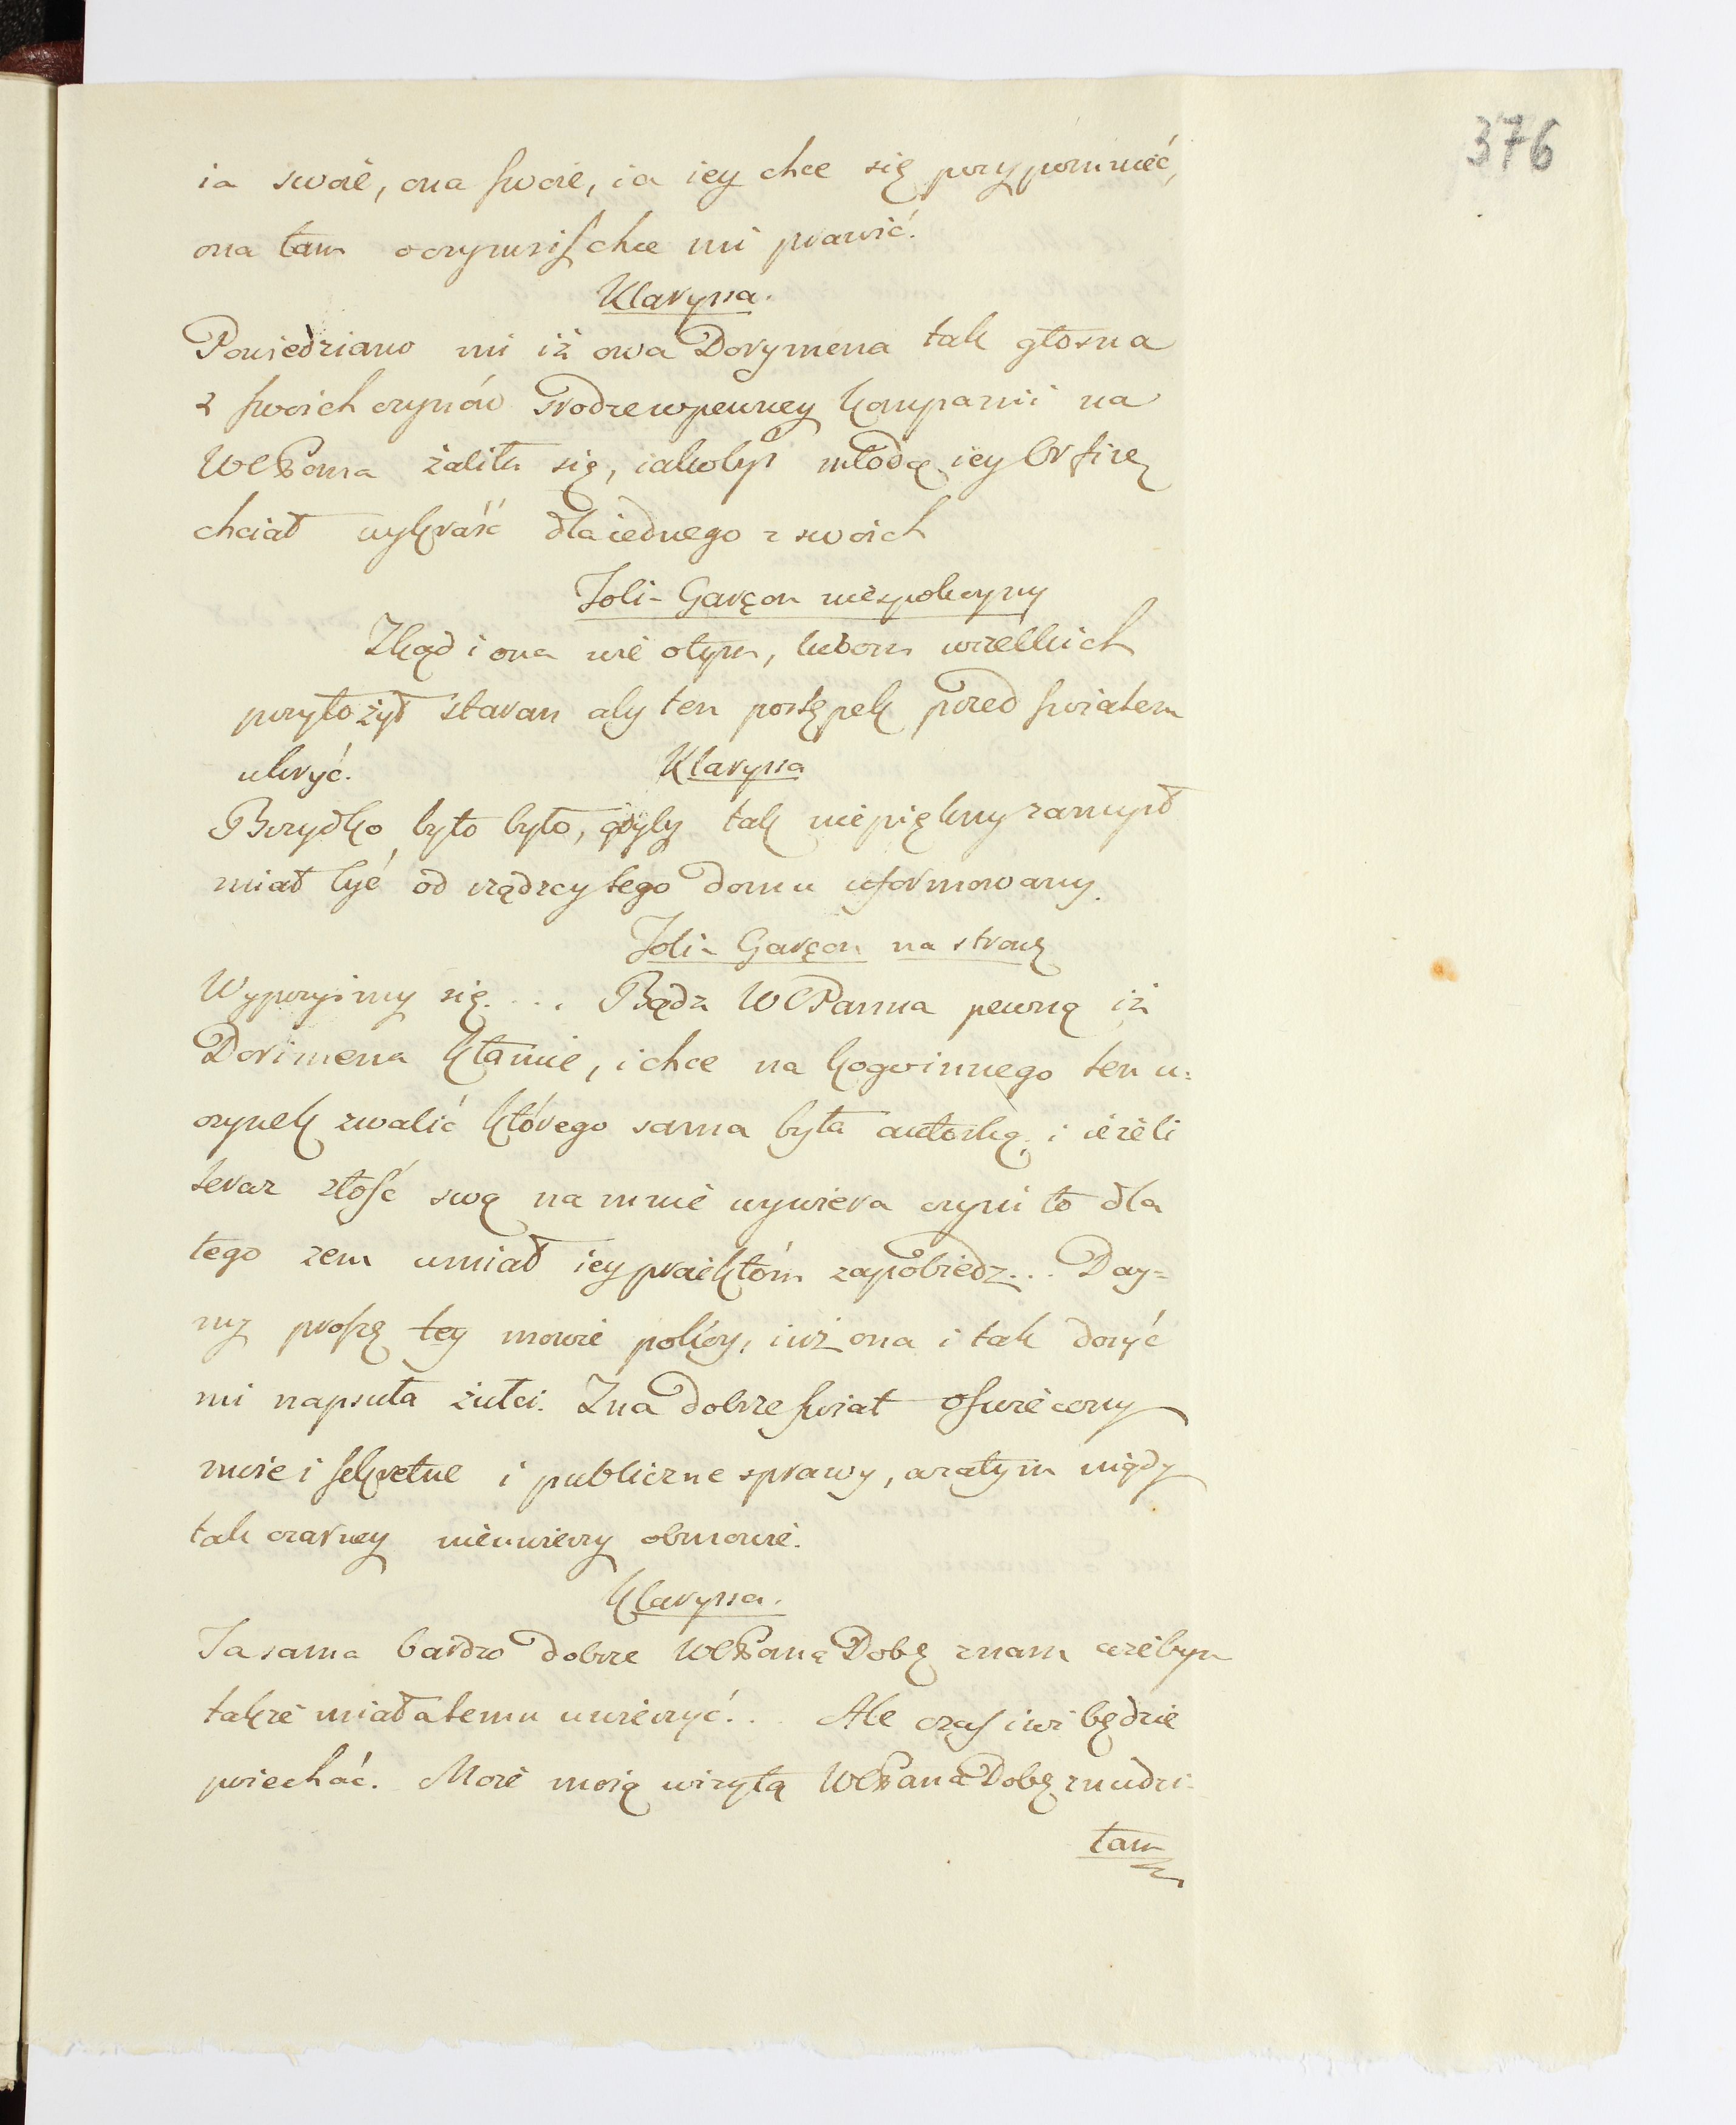 376
ia swoie, ona swoie, ia iey chce się przypomnieć,
ona tam o czymsiś chce mi prawić.
Klaryssa.
Powiedziano mi iż owa Dorymena tak głosna
z swoich czynów srodze w pewney kompanii na
WCPana żaliła się, iakobyś młodą iey Orfizę
chciał wykraść dla iednego z swoich
Joli-Garçon niespokoyny
Zkąd i ona wie o tym, lubom wszelkich
przyłożył staran aby ten postępek przed światem
ukryć.
Klaryssa
Brzydko by to było, gdyby tak niepiękny zamysł
miał być od rządzcy tego domu uformowany.
Joli-Garçon na stronę
Wyprzyimy się.... Bądz WCPanna pewną iż
Dorimena kłamie, i chce na kogo innego ten u=
czynek zwalić którego sama była autorką, i ieżeli
teraz złość swą na mnie wywiera czyni to dla
tego zem umiał iey proiektóm zapobiedz... Day=
my proszę tey mowie pokóy, iuż ona i tak dosyć
mi napsuła żułci. Zna dobrze świat oświecony
moie i sekretne i publiczne sprawy, a zatym nigdy
tak czarney nieuwierzy obmowie.
Klaryssa.
Ja sama bardzo dobrze WCPana Dobę znam ażebym
takze miała temu uwierzyć... Ale czas iuż będzie
poiechać. Może moią wizytą WCPana Dobę znudzi-
łam